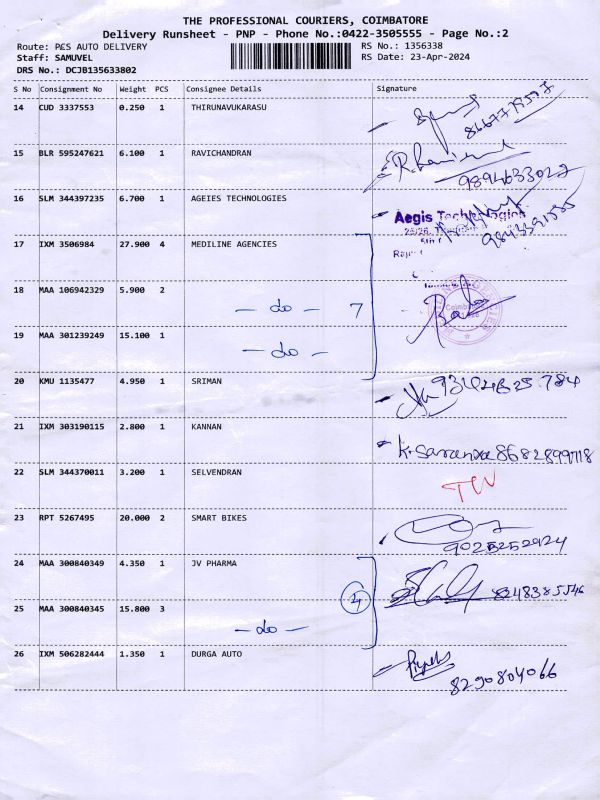 THE PROFESSIONAL COURIERS, COIMBATORE
Delivery Runsheet - PNP - Phone No.:0422-3505555 - Page No.:2
Route: PES AUTO DELIVERY RS No.: 1356338
Staff: SAMUVEL RS Date: 23-Apr-2024
DRS No.: DCJB135633802
S No Consignment No Weight PCS Consignee Details Signature
14 CUD 3337553 0.250 1 THIRUNAVUKARASU
15 BLR 595247621 6.100 1 RAVICHANDRAN
9894633022
16 SLM 344397235 6.700 1 AGEIES TECHNOLOGIES
Aegis Technologies
17 IXM 3506984 27.900 4 MEDILINE AGENCIES
18 MAA 106942329 5.900 2 - do - 7
19 MAA 301239249 15.100 1 - do -
20 KMU 1135477 4.950 1 SRIMAN
21 IXM 303190115 2.800 1 KANNAN
22 SLM 344370011 3.200 1 SELVENDRAN
23 RPT 5267495 20.000 2 SMART BIKES
9025252924
24 MAA 300840349 4.350 1 JV PHARMA
8248385546
25 MAA 300840345 15.800 3
- do -
26 IXM 506282444 1.350 1 DURGA AUTO
8290804066